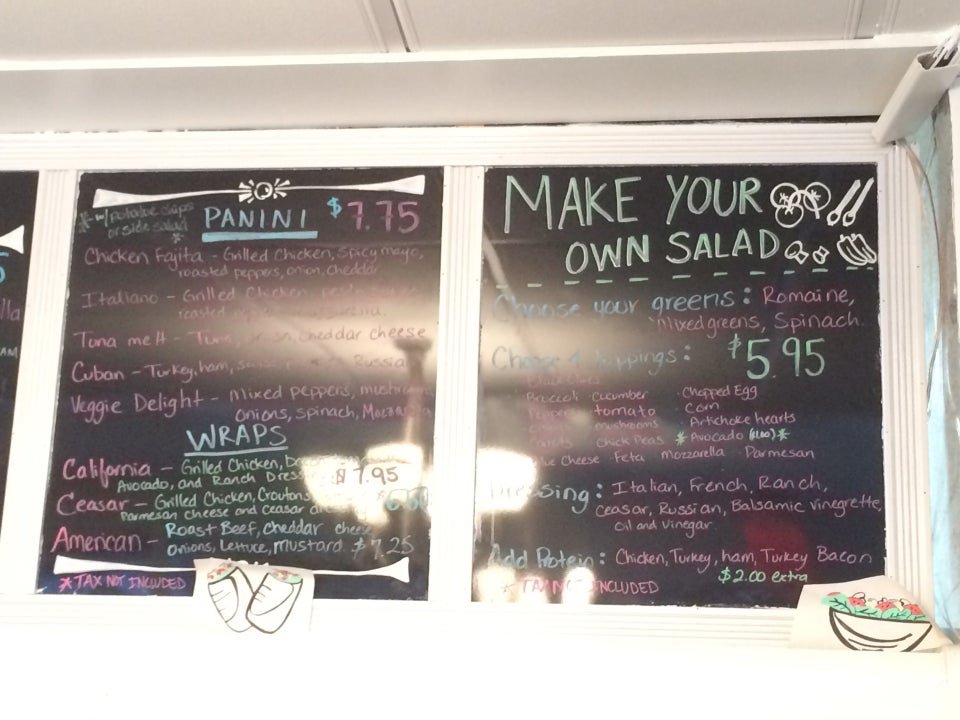 *w/ potatoe chips
or side salad
*
PANINI $7.75
Chicken Fajita - Grilled Chicken, Spicy mayo,
roasted peppers, onion, cheddar
Italiano - Grilled Chicken
roasted
Tuna melt - Tuna, cheddar cheese
Cuban - Turkey, ham, Russian
Veggie Delight - Mixed peppers, mushrooms
onions, spinach, Mozzarella
WRAPS
California - Grilled Chicken,
Avocado, and Ranch Dressing $7.95
Ceasar - Grilled Chicken, Croutons
Parmesan cheese and Ceasar dressing
American - Roast Beef, cheddar cheese
onions, Lettuce, mustard. $7.25
*TAX NOT INCLUDED
MAKE YOUR
OWN SALAD
Choose your greens: Romaine,
Mixed greens, Spinach.
Choose 4 toppings: $5.95
Black Olives
Broccoli cucumber Chopped Egg
Peppers tomato Corn
Onions mushrooms Artichoke hearts
Carrots Chick Peas *Avocado ($1.00)*
Cheese Feta Mozzarella Parmesan
Dressing: Italian, French, Ranch,
Ceasar, Russian, Balsamic vinegrette,
Oil and Vinegar
Add Protein: Chicken, Turkey, ham, Turkey Bacon
$2.00 extra
*TAX NOT INCLUDED